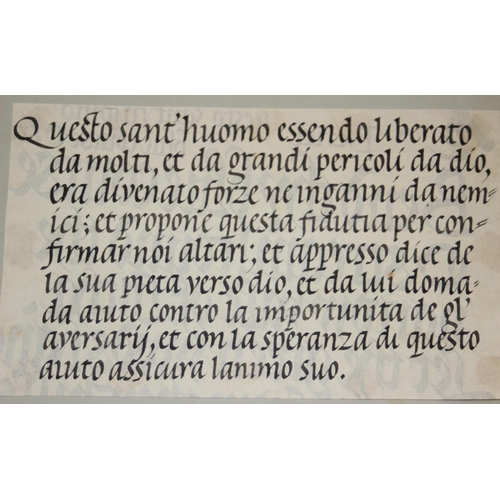 Questo sant'huomo essendo liberato
da molti, et da grandi pericoli da dio,
era divenato forze ne inganni da nem=
ici; et propone questa fidutia per con=
firmar noi altari; et appresso dice de
la sua pieta verso dio, et da lui doma=
da aiuto contro la importunita de gl'
aversarij, et con la speranza di questo
aiuto assicura lanimo suo.